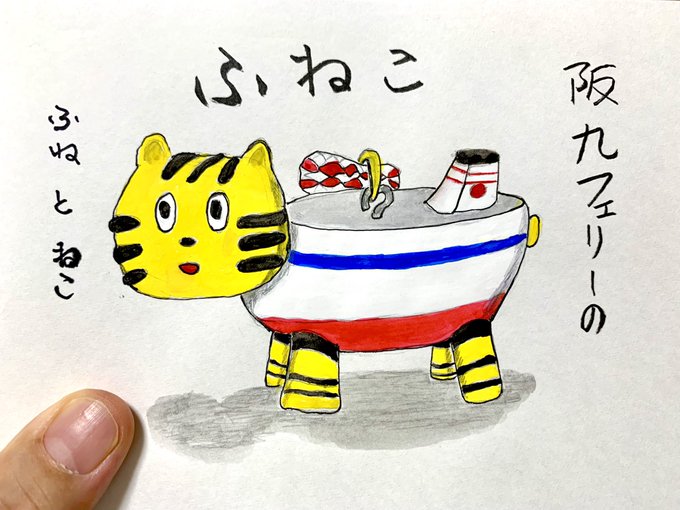 阪九フェリーの
ふねこ
ふねとねこ